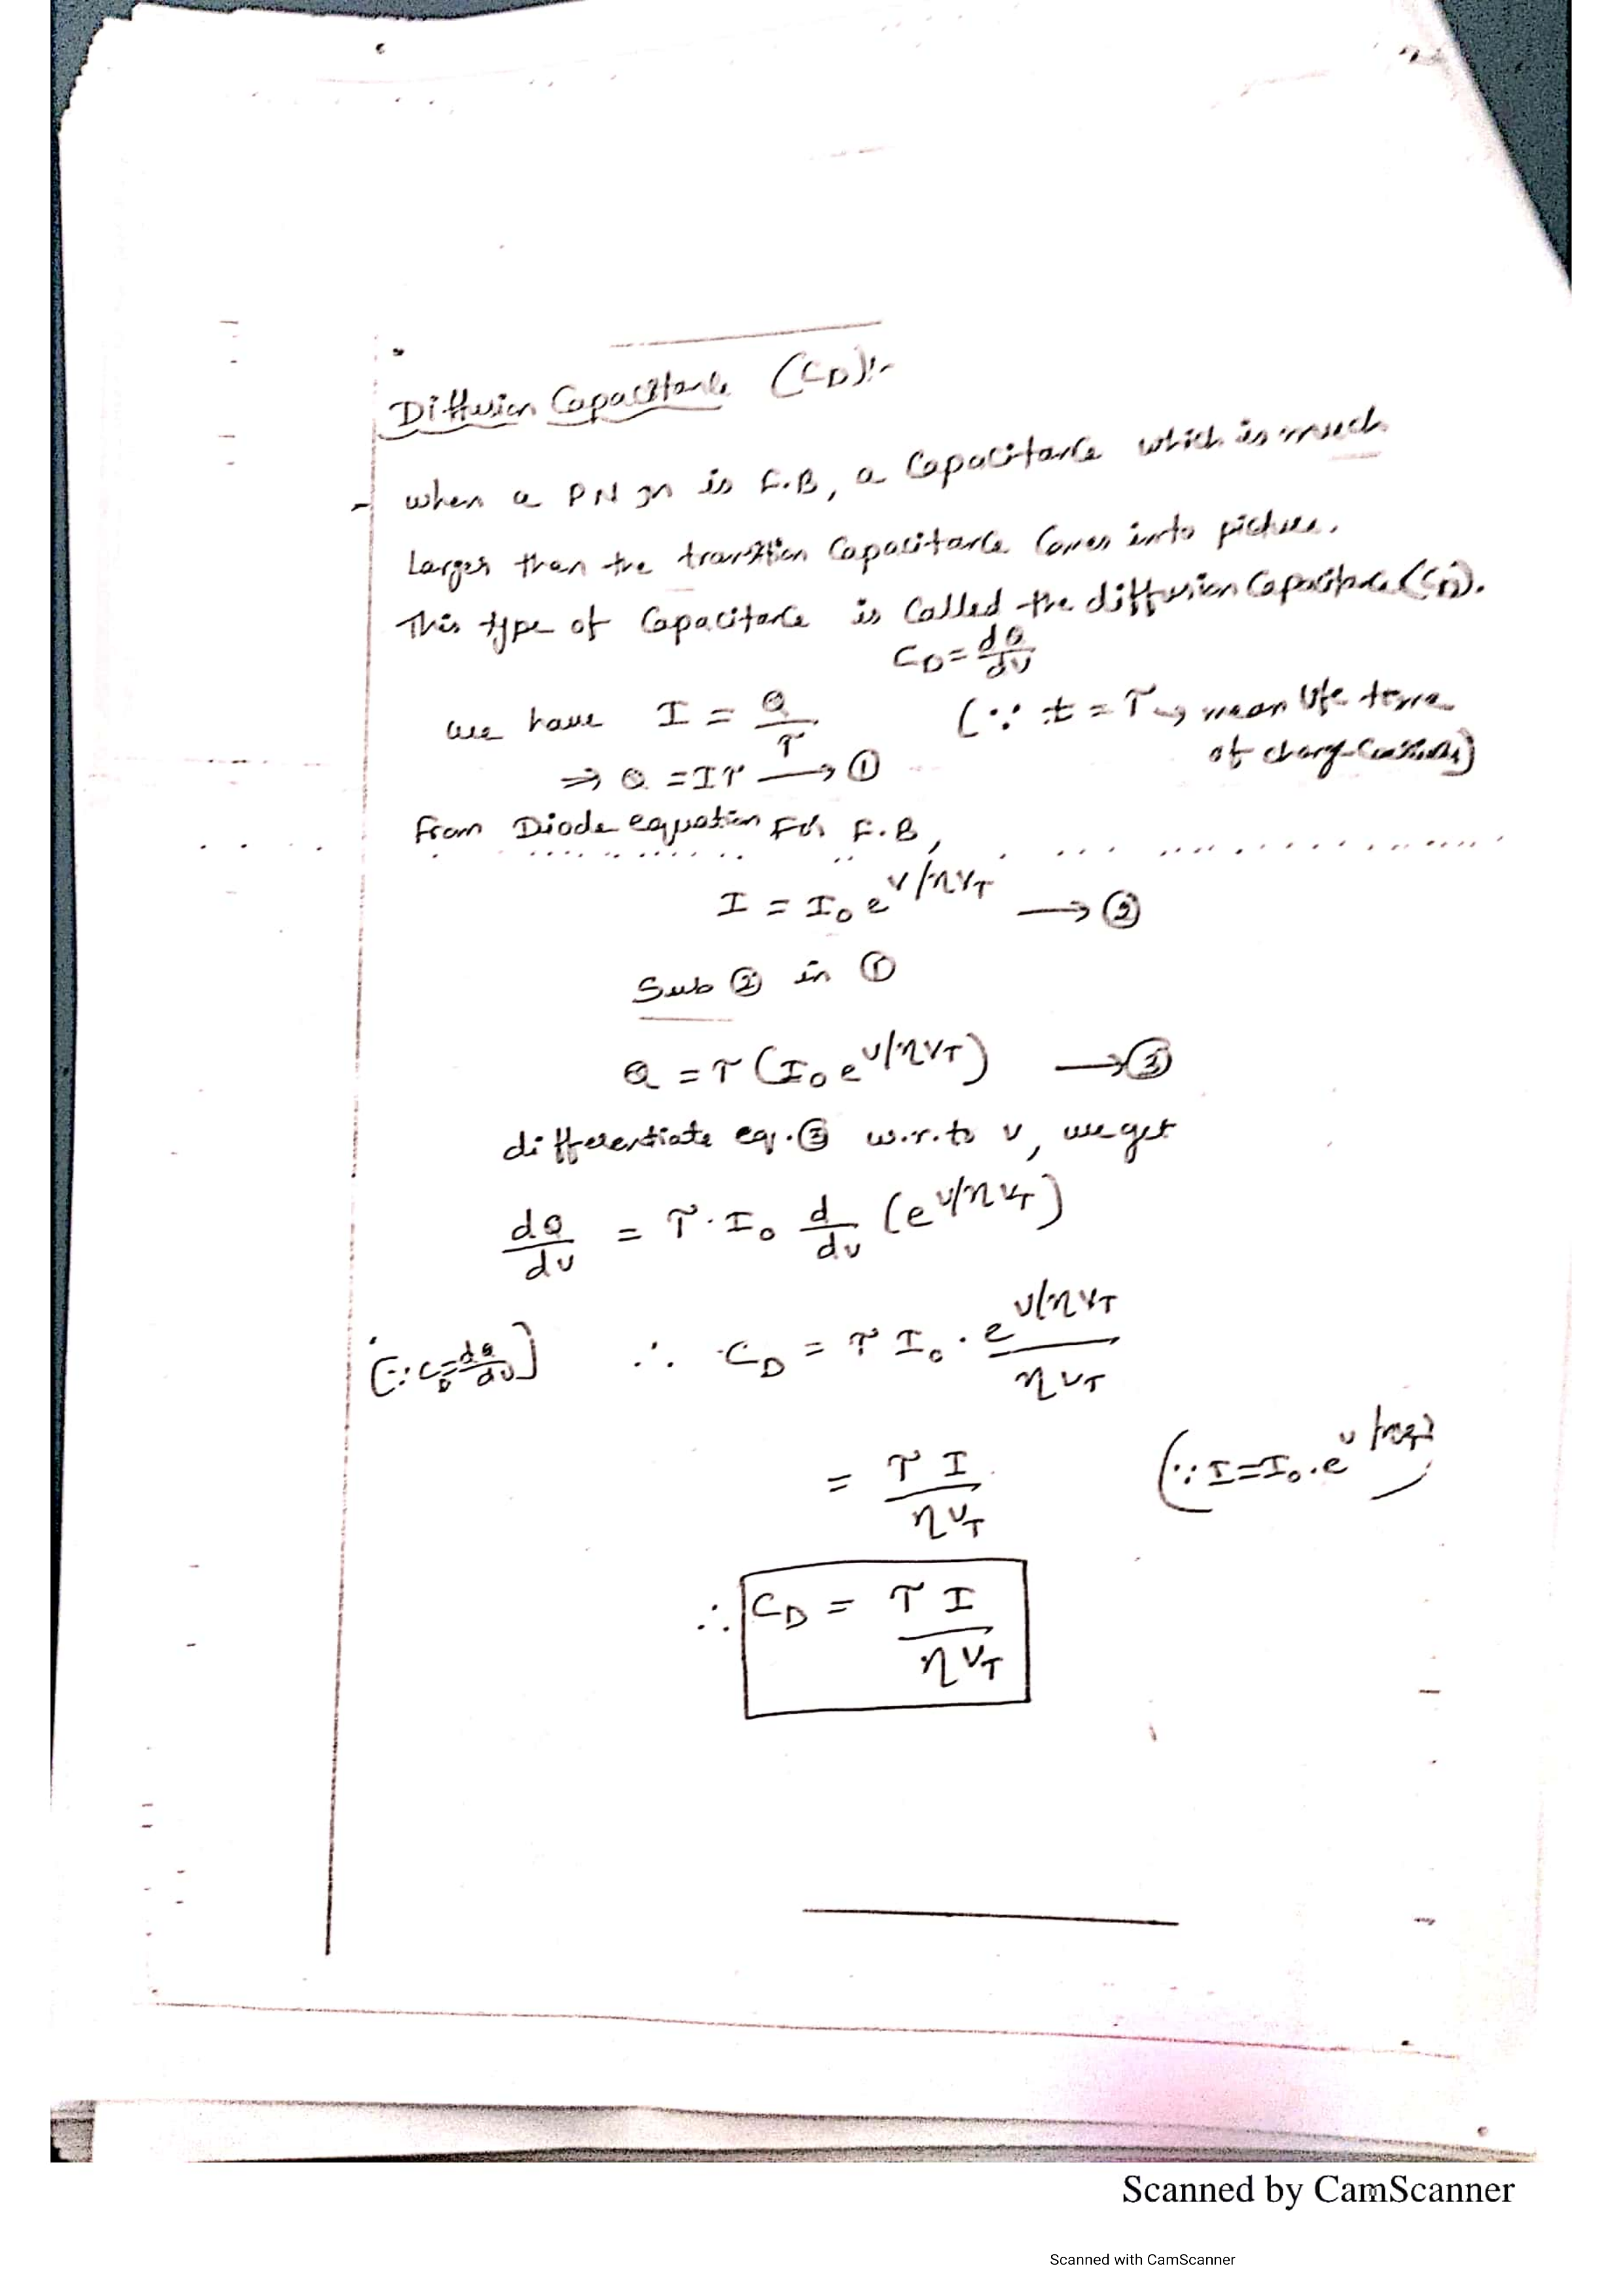 Diffusion Capacitance (C_D):-
- when a PN Jn is F.B, a Capacitance which is much
Larger than the transition Capacitance Comes into picture.
This type of Capacitance is Called the diffusion Capacitance (C_D).
C_D = dQ/dV
we have I = Q/τ (∵ t = τ → mean life time
of charge carriers)
⇒ Q = Iτ ⟶ ①
From Diode equation For F.B,
I = I₀ e^{V/ηV_T} ⟶ ②
Sub ② in ①
Q = τ (I₀ e^{V/ηV_T}) ⟶ ③
differentiate eq. ③ w.r.to V, we get
dQ/dV = τ · I₀ d/dV (e^{V/ηV_T})
[∵ C_D = dQ/dV] ∴ C_D = τ I₀ · e^{V/ηV_T} / ηV_T
= τ I / ηV_T (∵ I = I₀ · e^{V/ηV_T})
∴ C_D = τ I / ηV_T
Scanned by CamScanner
Scanned with CamScanner